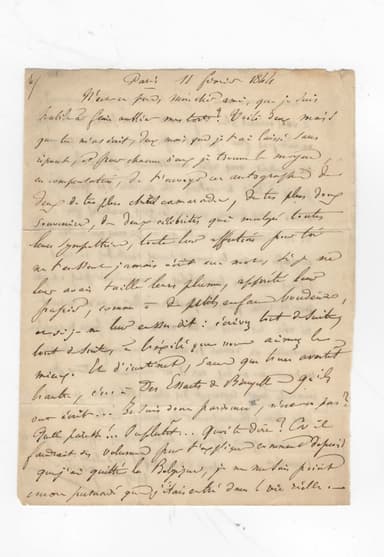 Paris 11 février 184
N'est-ce pas, mon cher ami, que je suis
habile à faire oublier mes torts? Voilà deux mois
que tu m'as écrit, deux mois que je t'ai laissé sans
réponse, et pour chacun d'eux je trouve le moyen,
en compensation, de t'envoyer un autographe de
deux de tes plus chers camarades, de tes plus doux
souvenirs, de deux célébrités qui malgré toutes
leurs sympathies, toute leur affection pour toi
ne t'eussent jamais écrit un mot, si je ne
leur avais taillé leurs plumes, apprêté leur
papier, comme à de petits enfans boudeurs,
et si je ne leur eusse dit: écrivez tout de suite,
tout de suite, à que vous aimez le
mieux. Et d'
haute, c'est à Des Essarts de Bruxelles qu'ils
ont écrit... Je suis donc pardonné, n'est-ce pas?
Plutôt... Que te dire? Or il
faudrait des volumes pour t'expliquer comment depuis
que j'ai quitté la Belgique, je ne me suis point
encore que j'étais entré dans la vie réelle.